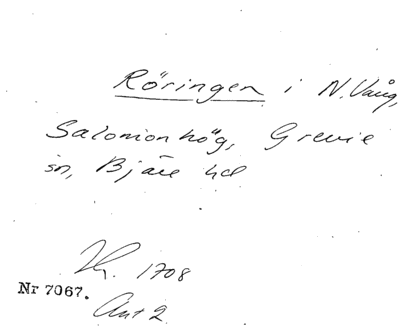 Röringen i N. Vång,
Salomonhög, Grevie
sn, Bjäre hd
1708
Nr 7067.
Akt 2